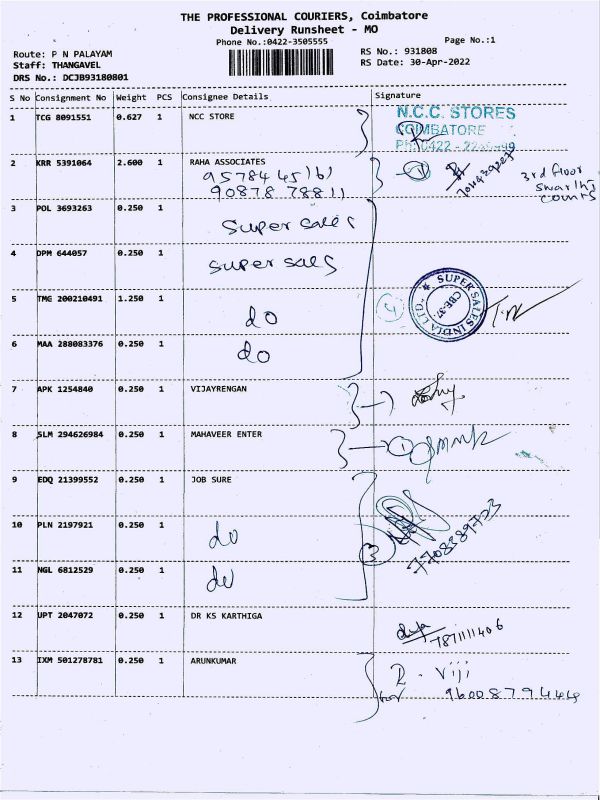 THE PROFESSIONAL COURIERS, Coimbatore
Delivery Runsheet - MO
Phone No.:0422-3505555
Page No.:1
Route: P N PALAYAM
RS No.: 931808
Staff: THANGAVEL
RS Date: 30-Apr-2022
DRS No.: DCJB93180801
S No Consignment No Weight PCS Consignee Details Signature
1 TCG 8091551 0.627 1 NCC STORE
N.C.C. STORES
COIMBATORE
2 KRR 5391064 2.600 1 RAHA ASSOCIATES
90878 78811
3rd floor
3 POL 3693263 0.250 1
Super sales
4 DPM 644057 0.250 1
super sales
5 TMG 200210491 1.250 1
do
4
SUPER SALES INDIA LTD.
CBE-37.
6 MAA 288083376 0.250 1
do
7 APK 1254840 0.250 1 VIJAYRENGAN
8 SLM 294626984 0.250 1 MAHAVEER ENTER
1
9 EDQ 21399552 0.250 1 JOB SURE
10 PLN 2197921 0.250 1
do
3
7708389723
11 NGL 6812529 0.250 1
do
12 UPT 2047072 0.250 1 DR KS KARTHIGA
7871111406
13 IXM 501278781 0.250 1 ARUNKUMAR
R. Viji
9600879444